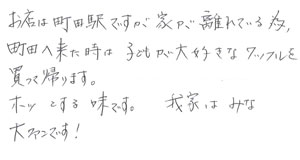 お店は町田駅ですが家が離れている為,
町田へ来た時は子どもが大好きなワッフルを
買って帰ります。
ホッとする味です。 我家はみな
大ファンです!